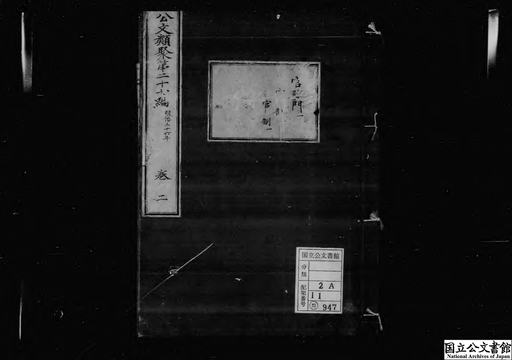 公文類聚第二十六編
明治三十五年
巻二
官職門一
官制一
国立公文書館
分類
配架番号
2A
11
947
国立公文書館
National Archives of Japan